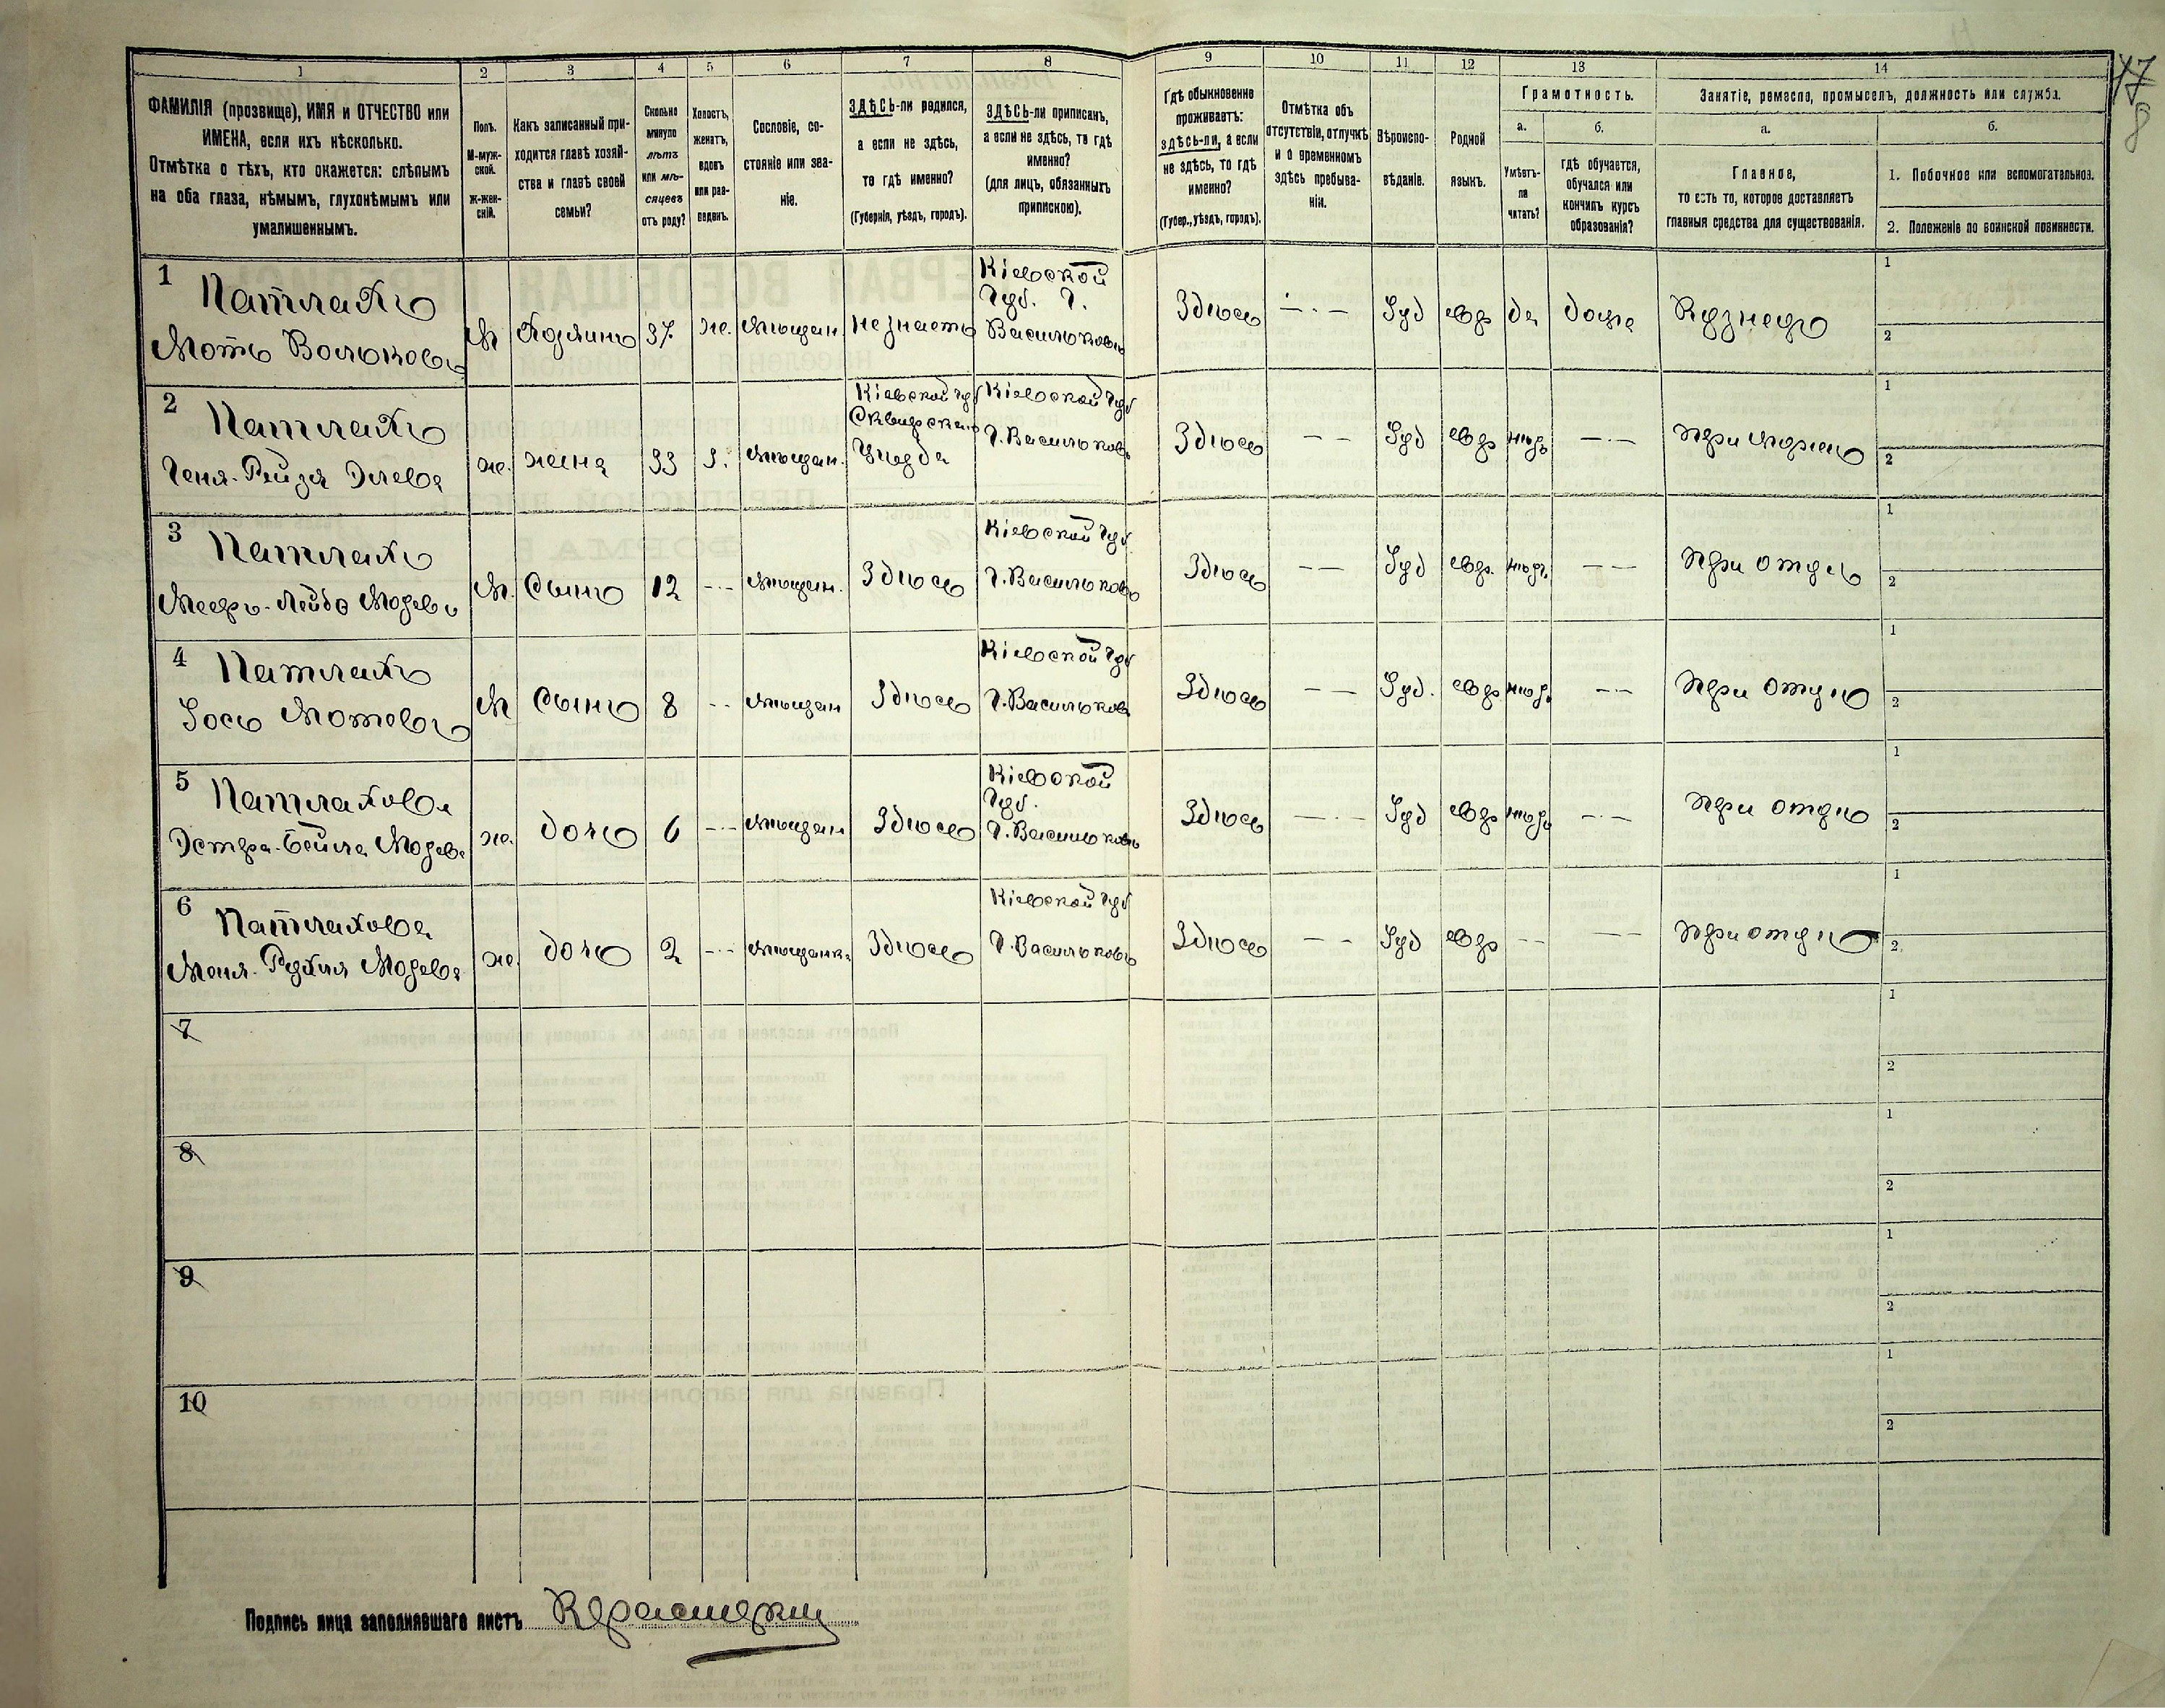 1 2 3 4 5 6 7 8 9 10 11 12 13 14
ФАМИЛІЯ (прозвище), ИМЯ и ОТЧЕСТВО или
ИМЕНА, если ихъ нѣсколько.
Отмѣтка о тѣхъ, кто окажется: слѣпымъ
на оба глаза, нѣмымъ, глухонѣмымъ или
умалишеннымъ.
Полъ.
М-муж-
ской.
ж-жен-
скій.
Какъ записанный при-
ходится главѣ хозяй-
ства и главѣ своей
семьи?
Сколько
минуло
лѣтъ
или мѣ-
сяцевъ
отъ роду?
Холостъ,
женатъ,
вдовъ
или раз-
веденъ.
Сословіе, со-
стояніе или зва-
ніе.
ЗДѢСЬ-ли родился,
а если не здѣсь,
то гдѣ именно?
(Губернія, уѣздъ, городъ).
ЗДѢСЬ-ли приписанъ,
а если не здѣсь, то гдѣ
именно?
(для лицъ, обязанныхъ
припискою).
Гдѣ обыкновенно
проживаетъ:
здѣсь-ли, а если
не здѣсь, то гдѣ
именно?
(Губер., уѣздъ, городъ).
Отмѣтка объ
отсутствіи, отлучкѣ
и о временномъ
здѣсь пребыва-
ніи.
Вѣроиспо-
вѣданіе.
Родной
языкъ.
Грамотность.
а.
Умѣетъ-
ли
читать?
б.
гдѣ обучается,
обучался или
кончилъ курсъ
образованія?
Занятіе, ремесло, промыселъ, должность или служба.
а.
Главное,
то есть то, которое доставляетъ
главныя средства для существованія.
б.
1. Побочное или вспомогательное.
2. Положеніе по воинской повинности.
77
8
1 Патлахъ
Мотъ Вольковъ
М Хозяинъ 37 же. Мѣщан не знаетъ
Кіевской
Губ. г.
Васильковъ
Здѣсь — · — Іуд евр да дома Кузнецъ
1
2
2 Патлахъ
Геня-Рейзя Элева
же. жена 33 з. Мѣщан.
Кіевской губ
Сквирскаго
Уѣзда
Кіевской губ
г. Васильковъ
Здѣсь — — Іуд евр нѣтъ — · — при мужѣ
1
2
3 Патлахъ
Мееръ-Лейбъ Мо
М. Сынъ 12 — · — Мѣщан. Здѣсь
Кіевской губ
г. Васильковъ
Здѣсь — — Іуд евр. нѣтъ — — при отцѣ
1
2
4 Патлахъ
Іось Мотевъ
М Сынъ 8 - - Мѣщан Здѣсь
Кіевской губ
г. Васильковъ
Здѣсь — — Іуд. евр нѣтъ — · — при отцѣ
1
2
5 Патлахова
Эстра-Бейла
же. дочь 6 — · — Мѣщан Здѣсь
Кіевской
Губ.
г. Васильковъ
Здѣсь — · — Іуд евр нѣтъ — · — при отцѣ
1
2
6 Патлахова
Меня-Рухля
же. дочь 2 — · — Мѣщанка Здѣсь
Кіевской губ
г. Васильковъ
Здѣсь — — Іуд евр — — — — при отцѣ
1
2
7
1
2
8
1
2
9
1
2
10
1
2
Подпись лица заполнявшаго листъ